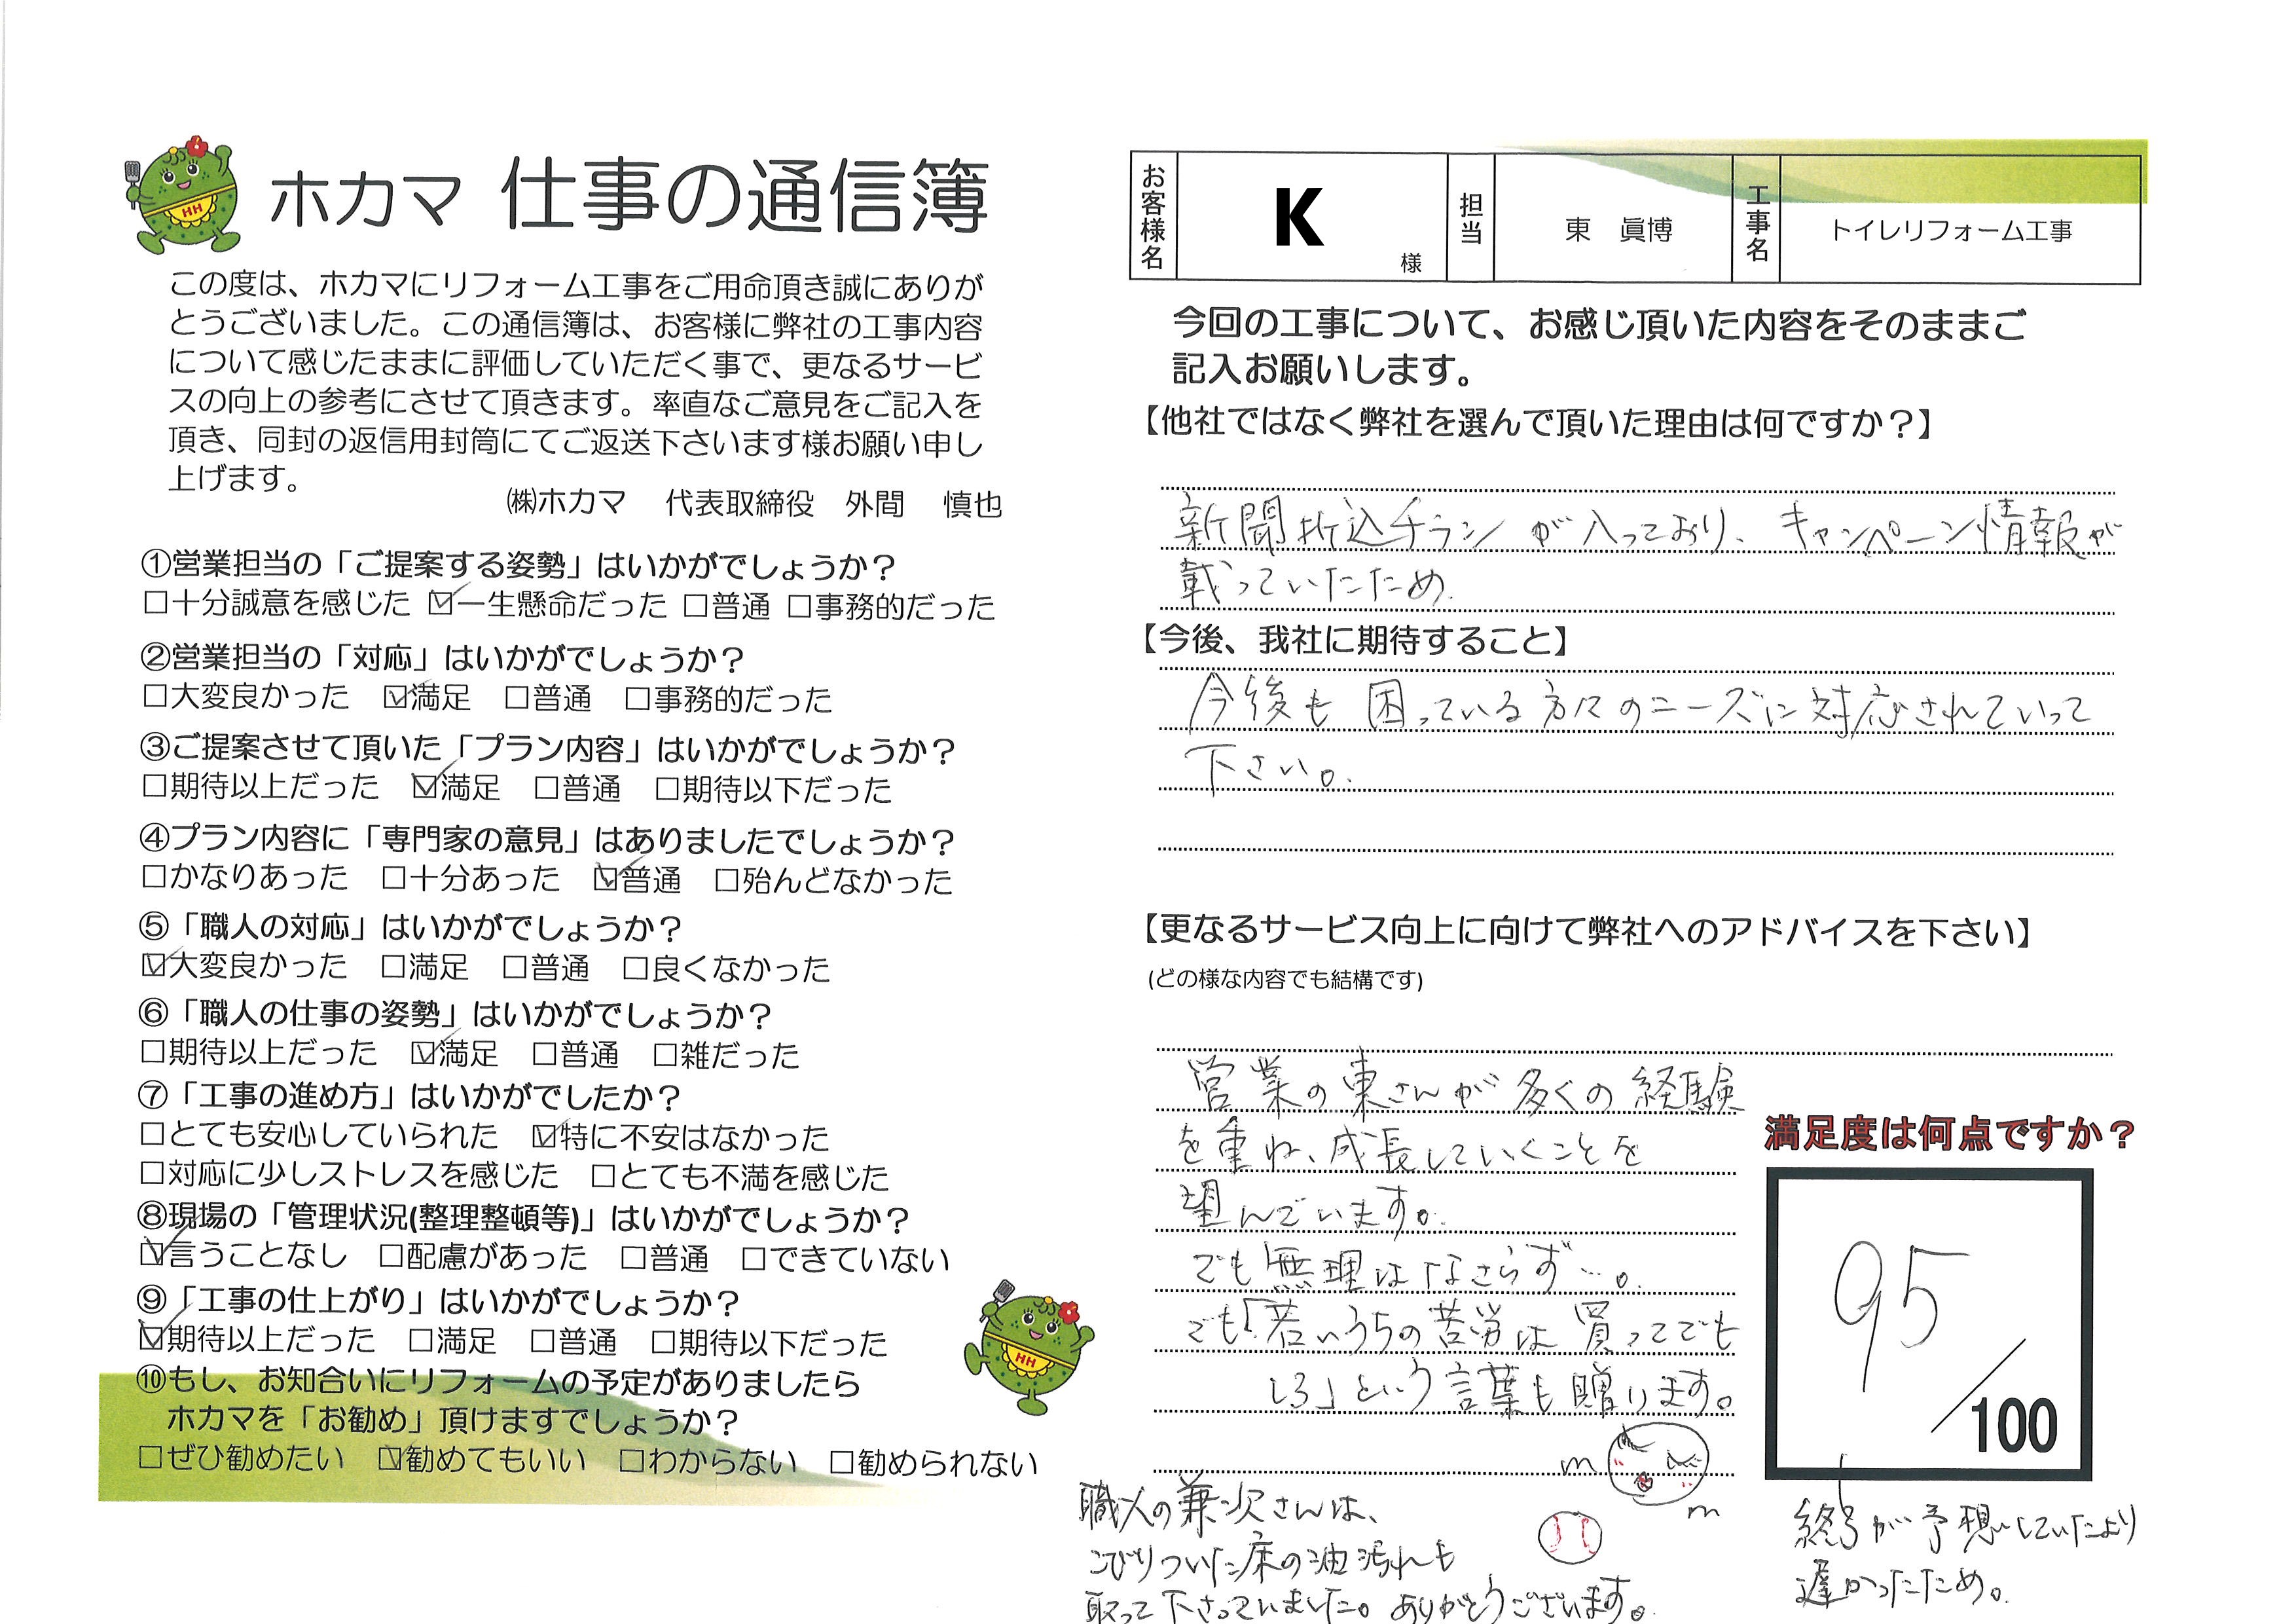 ホカマ 仕事の通信簿
この度は、ホカマにリフォーム工事をご用命頂き誠にありが
とうございました。この通信簿は、お客様に弊社の工事内容
について感じたままに評価していただく事で、更なるサービ
スの向上の参考にさせて頂きます。率直なご意見をご記入を
頂き、同封の返信用封筒にてご返送下さいます様お願い申し
上げます。
㈱ホカマ 代表取締役 外間 慎也
①営業担当の「ご提案する姿勢」はいかがでしょうか？
□十分誠意を感じた ☑一生懸命だった □普通 □事務的だった
②営業担当の「対応」はいかがでしょうか？
□大変良かった ☑満足 □普通 □事務的だった
③ご提案させて頂いた「プラン内容」はいかがでしょうか？
□期待以上だった ☑満足 □普通 □期待以下だった
④プラン内容に「専門家の意見」はありましたでしょうか？
□かなりあった □十分あった ☑普通 □殆んどなかった
⑤「職人の対応」はいかがでしょうか？
☑大変良かった □満足 □普通 □良くなかった
⑥「職人の仕事の姿勢」はいかがでしょうか？
□期待以上だった ☑満足 □普通 □雑だった
⑦「工事の進め方」はいかがでしたか？
□とても安心していられた ☑特に不安はなかった
□対応に少しストレスを感じた □とても不満を感じた
⑧現場の「管理状況(整理整頓等)」はいかがでしょうか？
☑言うことなし □配慮があった □普通 □できていない
⑨「工事の仕上がり」はいかがでしょうか？
☑期待以上だった □満足 □普通 □期待以下だった
⑩もし、お知合いにリフォームの予定がありましたら
ホカマを「お勧め」頂けますでしょうか？
□ぜひ勧めたい ☑勧めてもいい □わからない □勧められない
HH
HH
お客様名 K 様 担当 東 眞博 工事名 トイレリフォーム工事
今回の工事について、お感じ頂いた内容をそのままご
記入お願いします。
【他社ではなく弊社を選んで頂いた理由は何ですか？】
新聞折込チラシが入っており、キャンペーン情報が
載っていたため.
【今後、我社に期待すること】
今後も困っている方々のニーズに対応されていって
下さい。
【更なるサービス向上に向けて弊社へのアドバイスを下さい】
(どの様な内容でも結構です)
営業の東さんが多くの経験
を重ね、成長していくことを
望んでいます。
でも無理はなさらず…。
でも「若いうちの苦労は買ってでも
しろ」という言葉も贈ります。
m
m
職人の兼次さんは、
こびりついた床の油汚れも
取って下さっていました。ありがとうございます。
満足度は何点ですか？
95/100
終了が予想していたより
遅かったため。